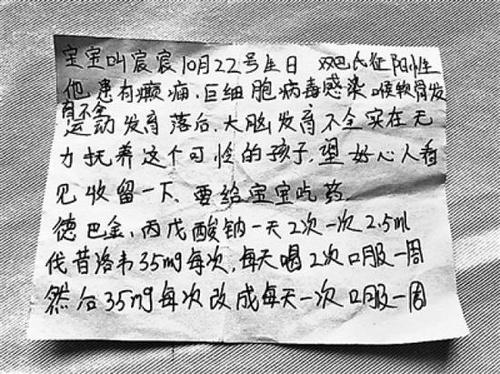 宝宝叫宸宸10月22号生日 双巴氏征阳性
他患有癫痫.巨细胞病毒感染 喉软骨发
育不全
运动发育落后.大脑发育不全实在无
力抚养这个可怜的孩子.望好心人看
见收留一下.要给宝宝吃药.
德巴金、丙戊酸钠一天2次一次2.5ml
伐昔洛韦35mg每次,每天喝2次口服一周
然后35mg每次改成每天一次口服一周